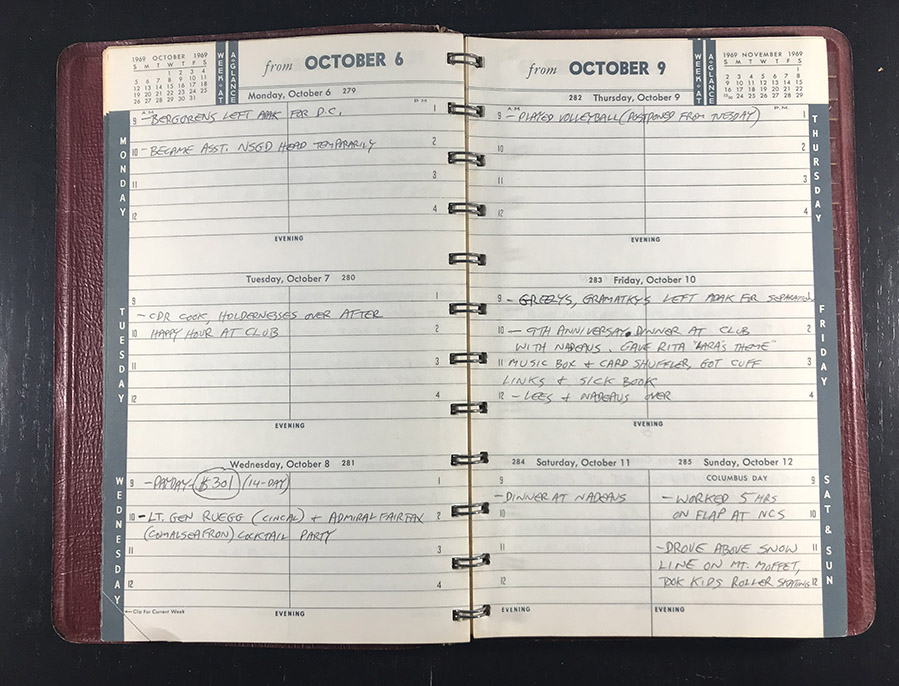 1969 OCTOBER 1969
S M T W T F S
1 2 3 4
5 6 7 8 9 10 11
12 13 14 15 16 17 18
19 20 21 22 23 24 25
26 27 28 29 30 31
WEEK•AT
A•GLANCE
from OCTOBER 6
Monday, October 6 279
MONDAY
A.M.
P.M.
9 - BERGORENS LEFT ADAK FOR D.C. 1
10 - BECAME ASST. NSGD HEAD TEMPORARILY 2
11 3
12 4
EVENING
Tuesday, October 7 280
TUESDAY
9 1
- CDR COOK, HOLDERNESSES OVER AFTER
10 HAPPY HOUR AT CLUB 2
11 3
12 4
EVENING
Wednesday, October 8 281
WEDNESDAY
9 - PAYDAY - $301 (14-DAY) 1
10 - LT. GEN RUEGG (CINCAL) & ADMIRAL FAIRFAX 2
(COMALSEAFRON) COCKTAIL PARTY
11 3
12 4
←Clip For Current Week
EVENING
from OCTOBER 9
WEEK•AT
A•GLANCE
1969 NOVEMBER 1969
S M T W T F S
1
2 3 4 5 6 7 8
9 10 11 12 13 14 15
16 17 18 19 20 21 22
23/30 24 25 26 27 28 29
282 Thursday, October 9
THURSDAY
A.M.
P.M.
9 - PLAYED VOLLEYBALL (POSTPONED FROM TUESDAY) 1
10 2
11 3
12 4
EVENING
283 Friday, October 10
FRIDAY
9 - GREELYS, GRAMATKYS LEFT ADAK FOR SEPARATION
10 - 9TH ANNIVERSAY DINNER AT CLUB 2
WITH NADEAUS. GAVE RITA "LARA'S THEME"
11 MUSIC BOX & CARD SHUFFLER, GOT CUFF 3
LINKS & SICK BOOK
12 - LEES & NADEAUS OVER 4
EVENING
284 Saturday, October 11
9
- DINNER AT NADEAUS
10
11
12
EVENING
285 Sunday, October 12
COLUMBUS DAY
SAT & SUN
9
- WORKED 5 HRS
ON FLAP AT NCS 10
- DROVE ABOVE SNOW 11
LINE ON MT. MOFFET,
TOOK KIDS ROLLER SKATING 12
EVENING